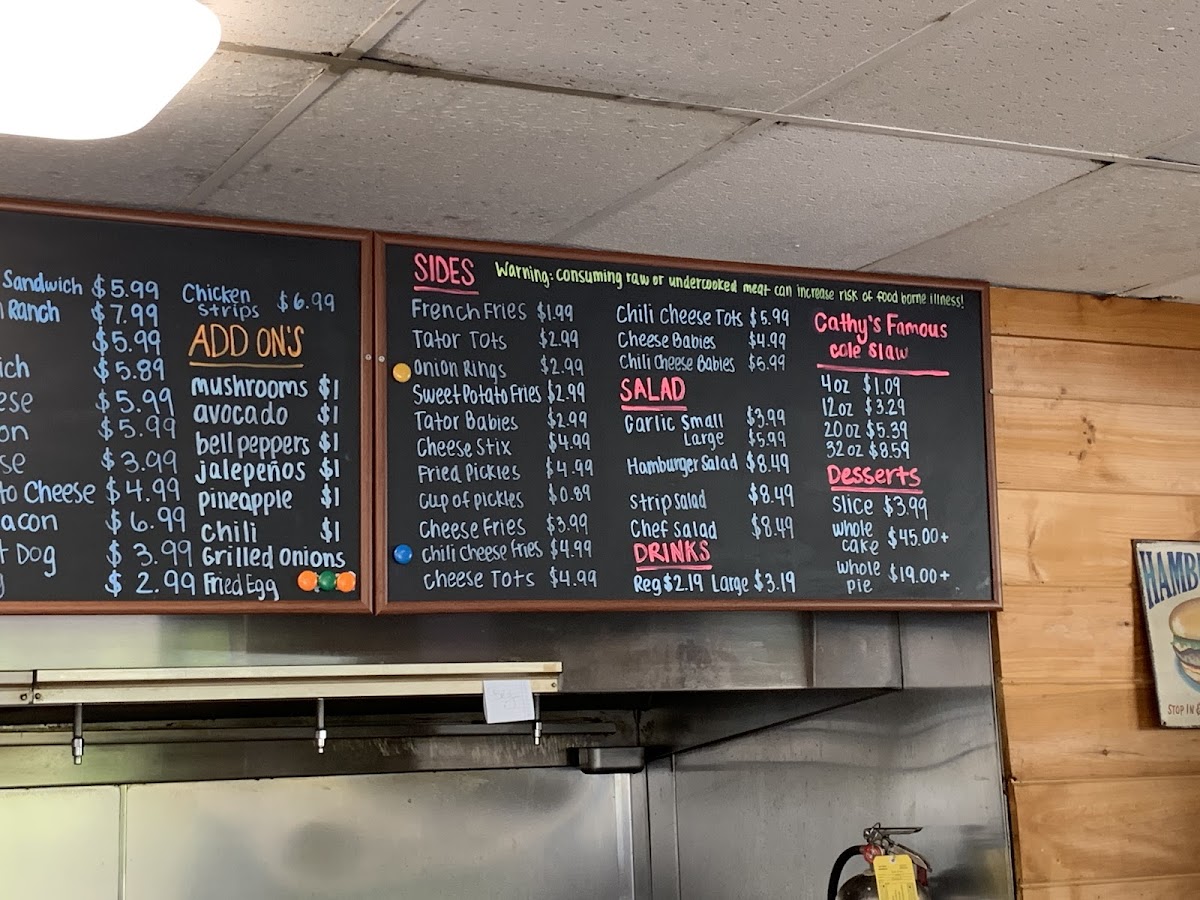 Sandwich $5.99
Ranch $7.99
$5.99
ich $5.89
ese $5.99
on $5.99
se $3.99
to Cheese $4.99
acon $6.99
t Dog $3.99
$2.99
Chicken strips $6.99
ADD ON'S
mushrooms $1
avocado $1
bell peppers $1
jalepeños $1
pineapple $1
chili $1
Grilled Onions
Fried Egg
SIDES
Warning: consuming raw or undercooked meat can increase risk of food borne illness!
French Fries $1.99
Tator Tots $2.99
Onion Rings $2.99
Sweet Potato Fries $2.99
Tator Babies $2.99
Cheese Stix $4.99
Fried Pickles $4.99
Cup of pickles $0.89
Cheese Fries $3.99
Chili Cheese Fries $4.99
Cheese Tots $4.99
Chili Cheese Tots $5.99
Cheese Babies $4.99
Chili Cheese Babies $5.99
SALAD
Garlic Small $3.99
Large $5.99
Hamburger Salad $8.49
Strip Salad $8.49
Chef Salad $8.49
DRINKS
Reg $2.19 Large $3.19
Cathy's Famous
cole slaw
4oz $1.09
12oz $3.29
20oz $5.39
32oz $8.59
Desserts
Slice $3.99
whole cake $45.00+
whole pie $19.00+
HAMB
STOP IN &